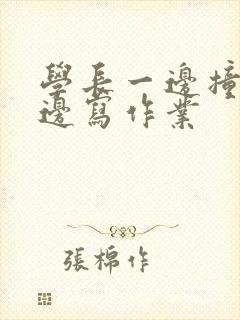 學長一邊撞
邊寫作業
張棉作